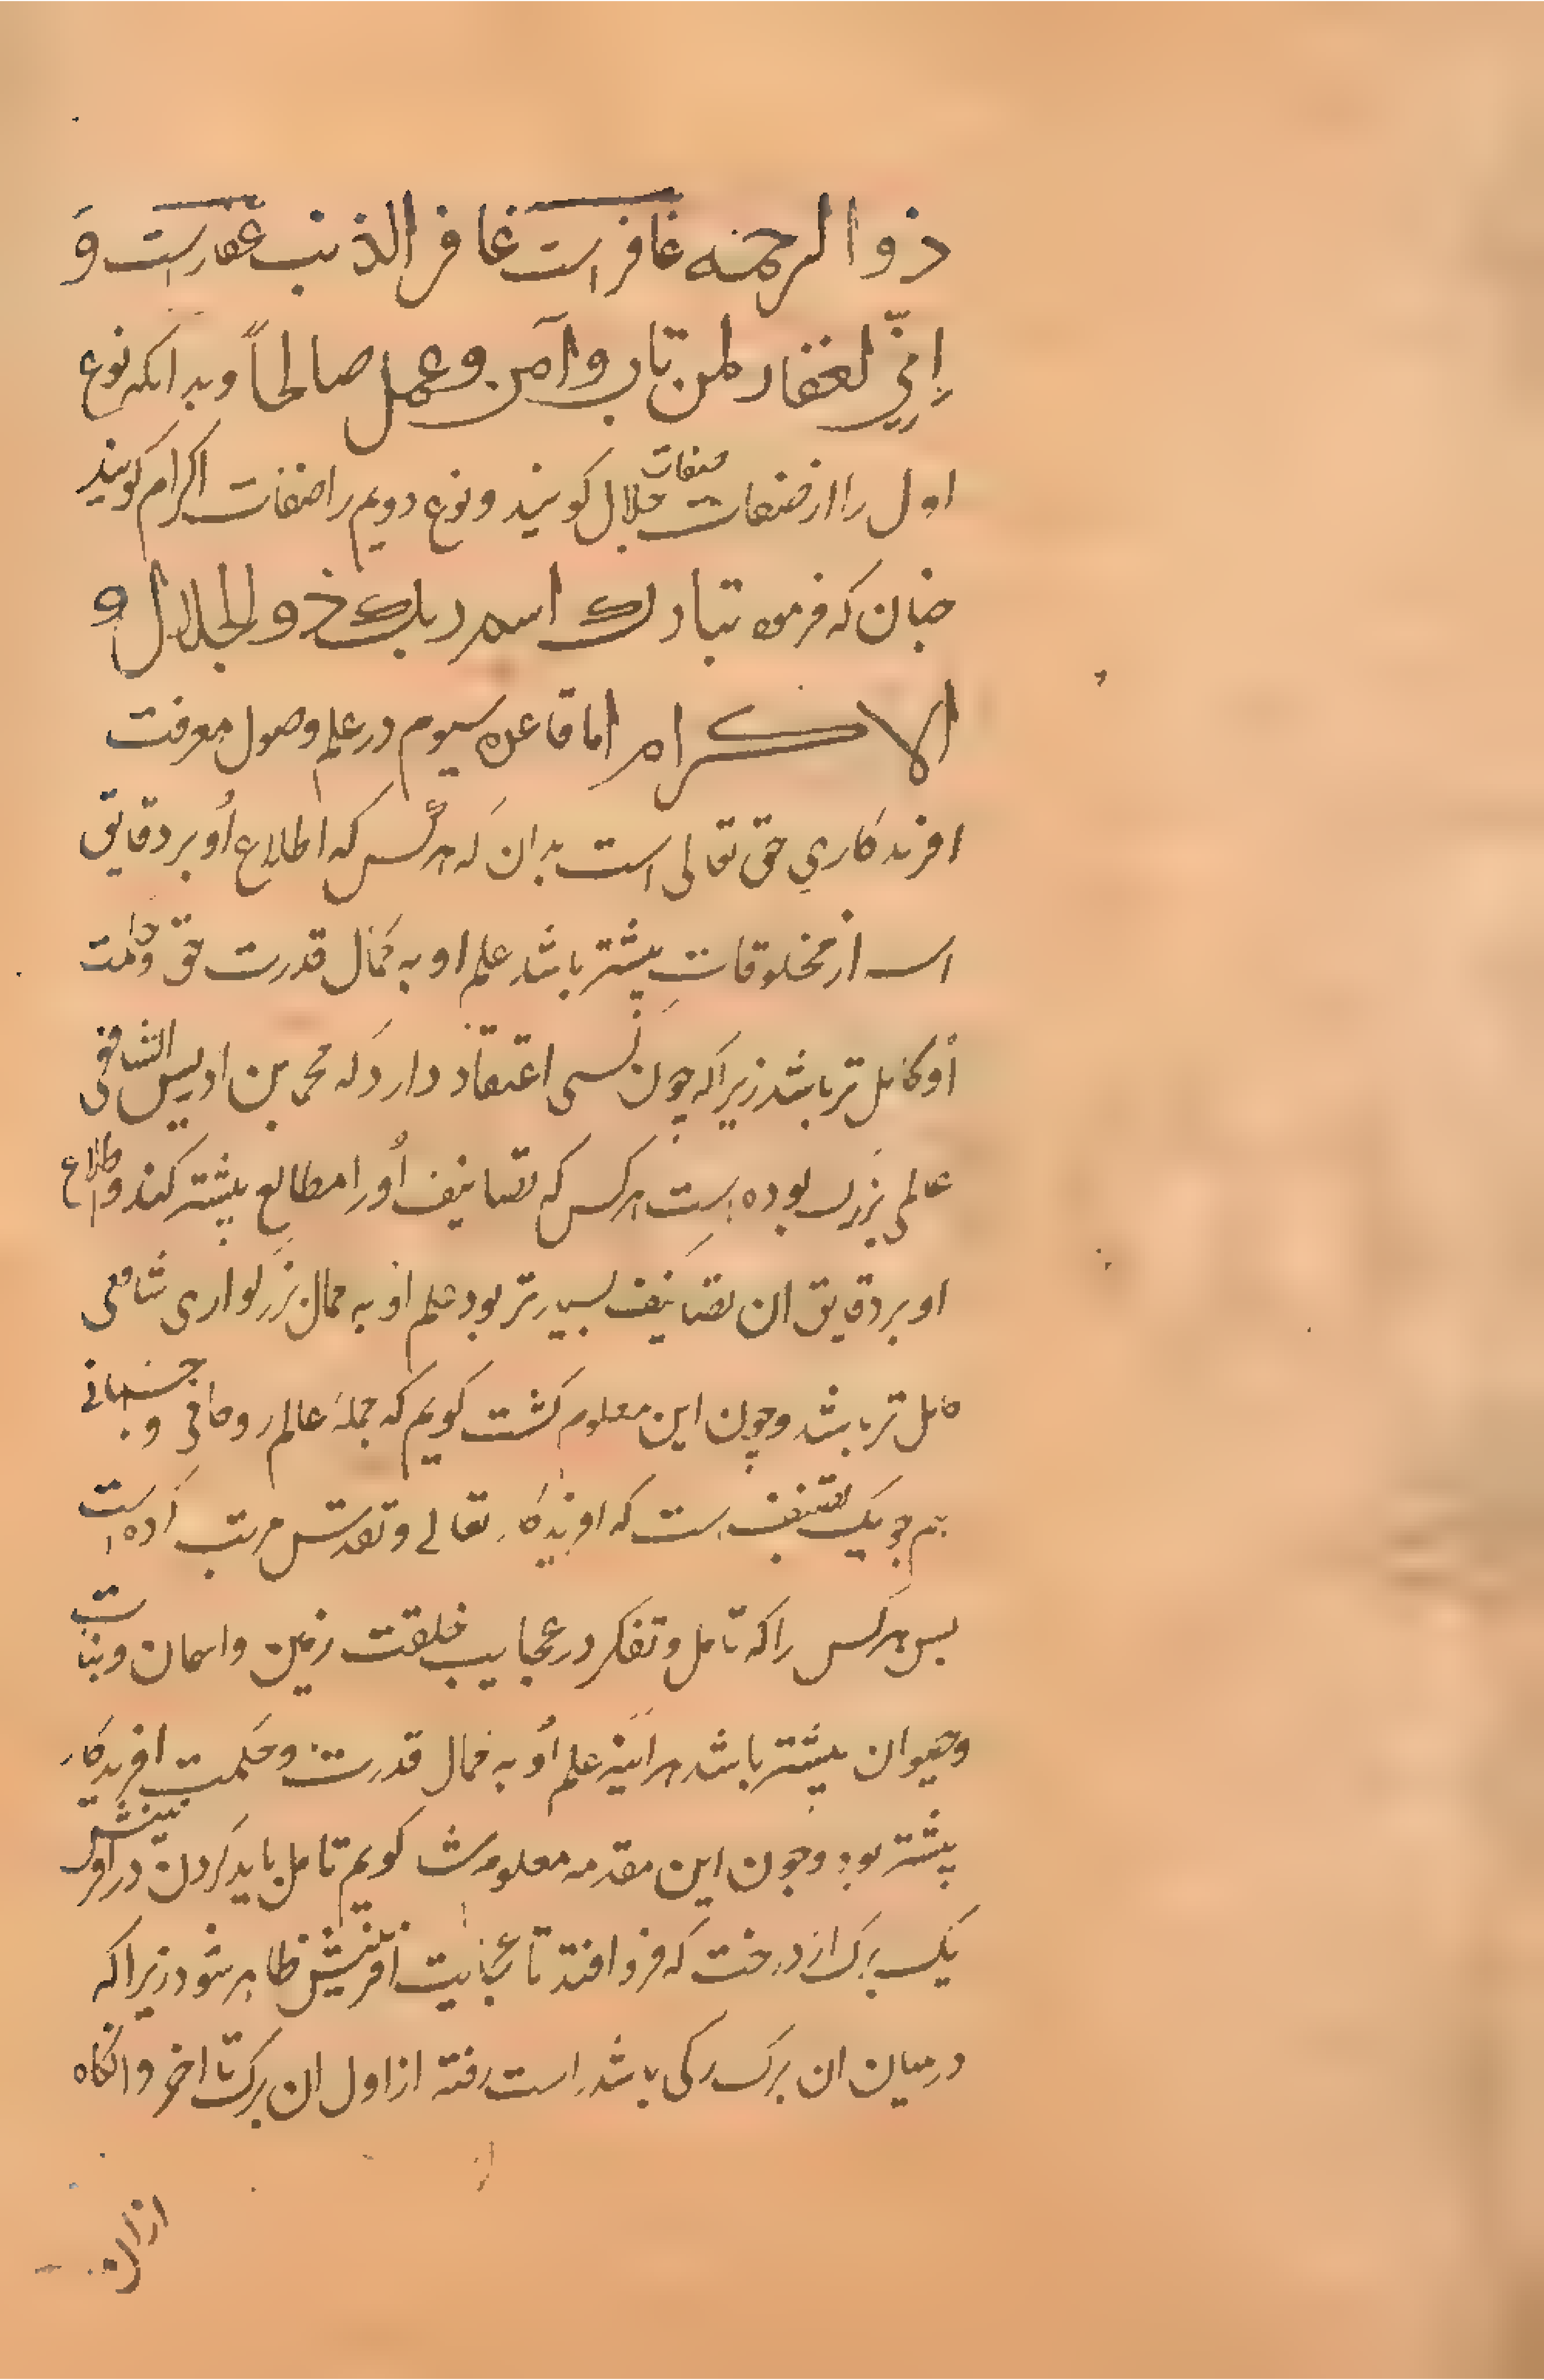 ذوالرحمه غافرست غافر الذنب غفارست و
اِنّي لغفار لمن تاب وآمن وعمل صالحاً وبدانکه نوع
اول را از صفات جلال کویند ونوع دویم را صفات اکرام کویند
صفات
جنان که فرموده تبارك اسم ربك ذو الجلال و
الاكرام اما قاعده سیوم در علم وصول معرفت
افریدکاري حق تعالی است بدان که هرکس که اطلاع اُو بر دقایق
اسرار مخلوقات بیشتر باشد علم او به کمال قدرت حق وحکمت
اُو کامل تر باشد زیراکه چون کسی اعتقاد دارد که محمد بن ادریس الشافعی
عالمی بزرک بوده است هرکس که تصانیف اُورا مطالع بیشتر کند واطلاع
او بر دقایق ان تصانیف بسیارتر بود علم او به کمال بزرکواری شافعی
کامل تر باشد وچون این معلوم کشت کویم که جمله عالم روحانی و جسمانی
هم چو یک تصنیف است که افریدکار تعالی وتقدس مرتب کرده است
بس هرکس را که تامل وتفکر در عجایب خلقت زمین واسمان ونبات
وحیوان بیشتر باشد هراینه علم اُو به کمال قدرت وحکمت افریدکار
بیشتر بود وچون این مقدمه معلوم شد کویم تامل باید کردن در افرینش
یک برک از درخت که فرو افتد تا عجایب افرینش ظاهر شود زیراکه
در میان ان برک رکی باشد راست رفته از اول ان برک تا اخر وانکاه
از ان